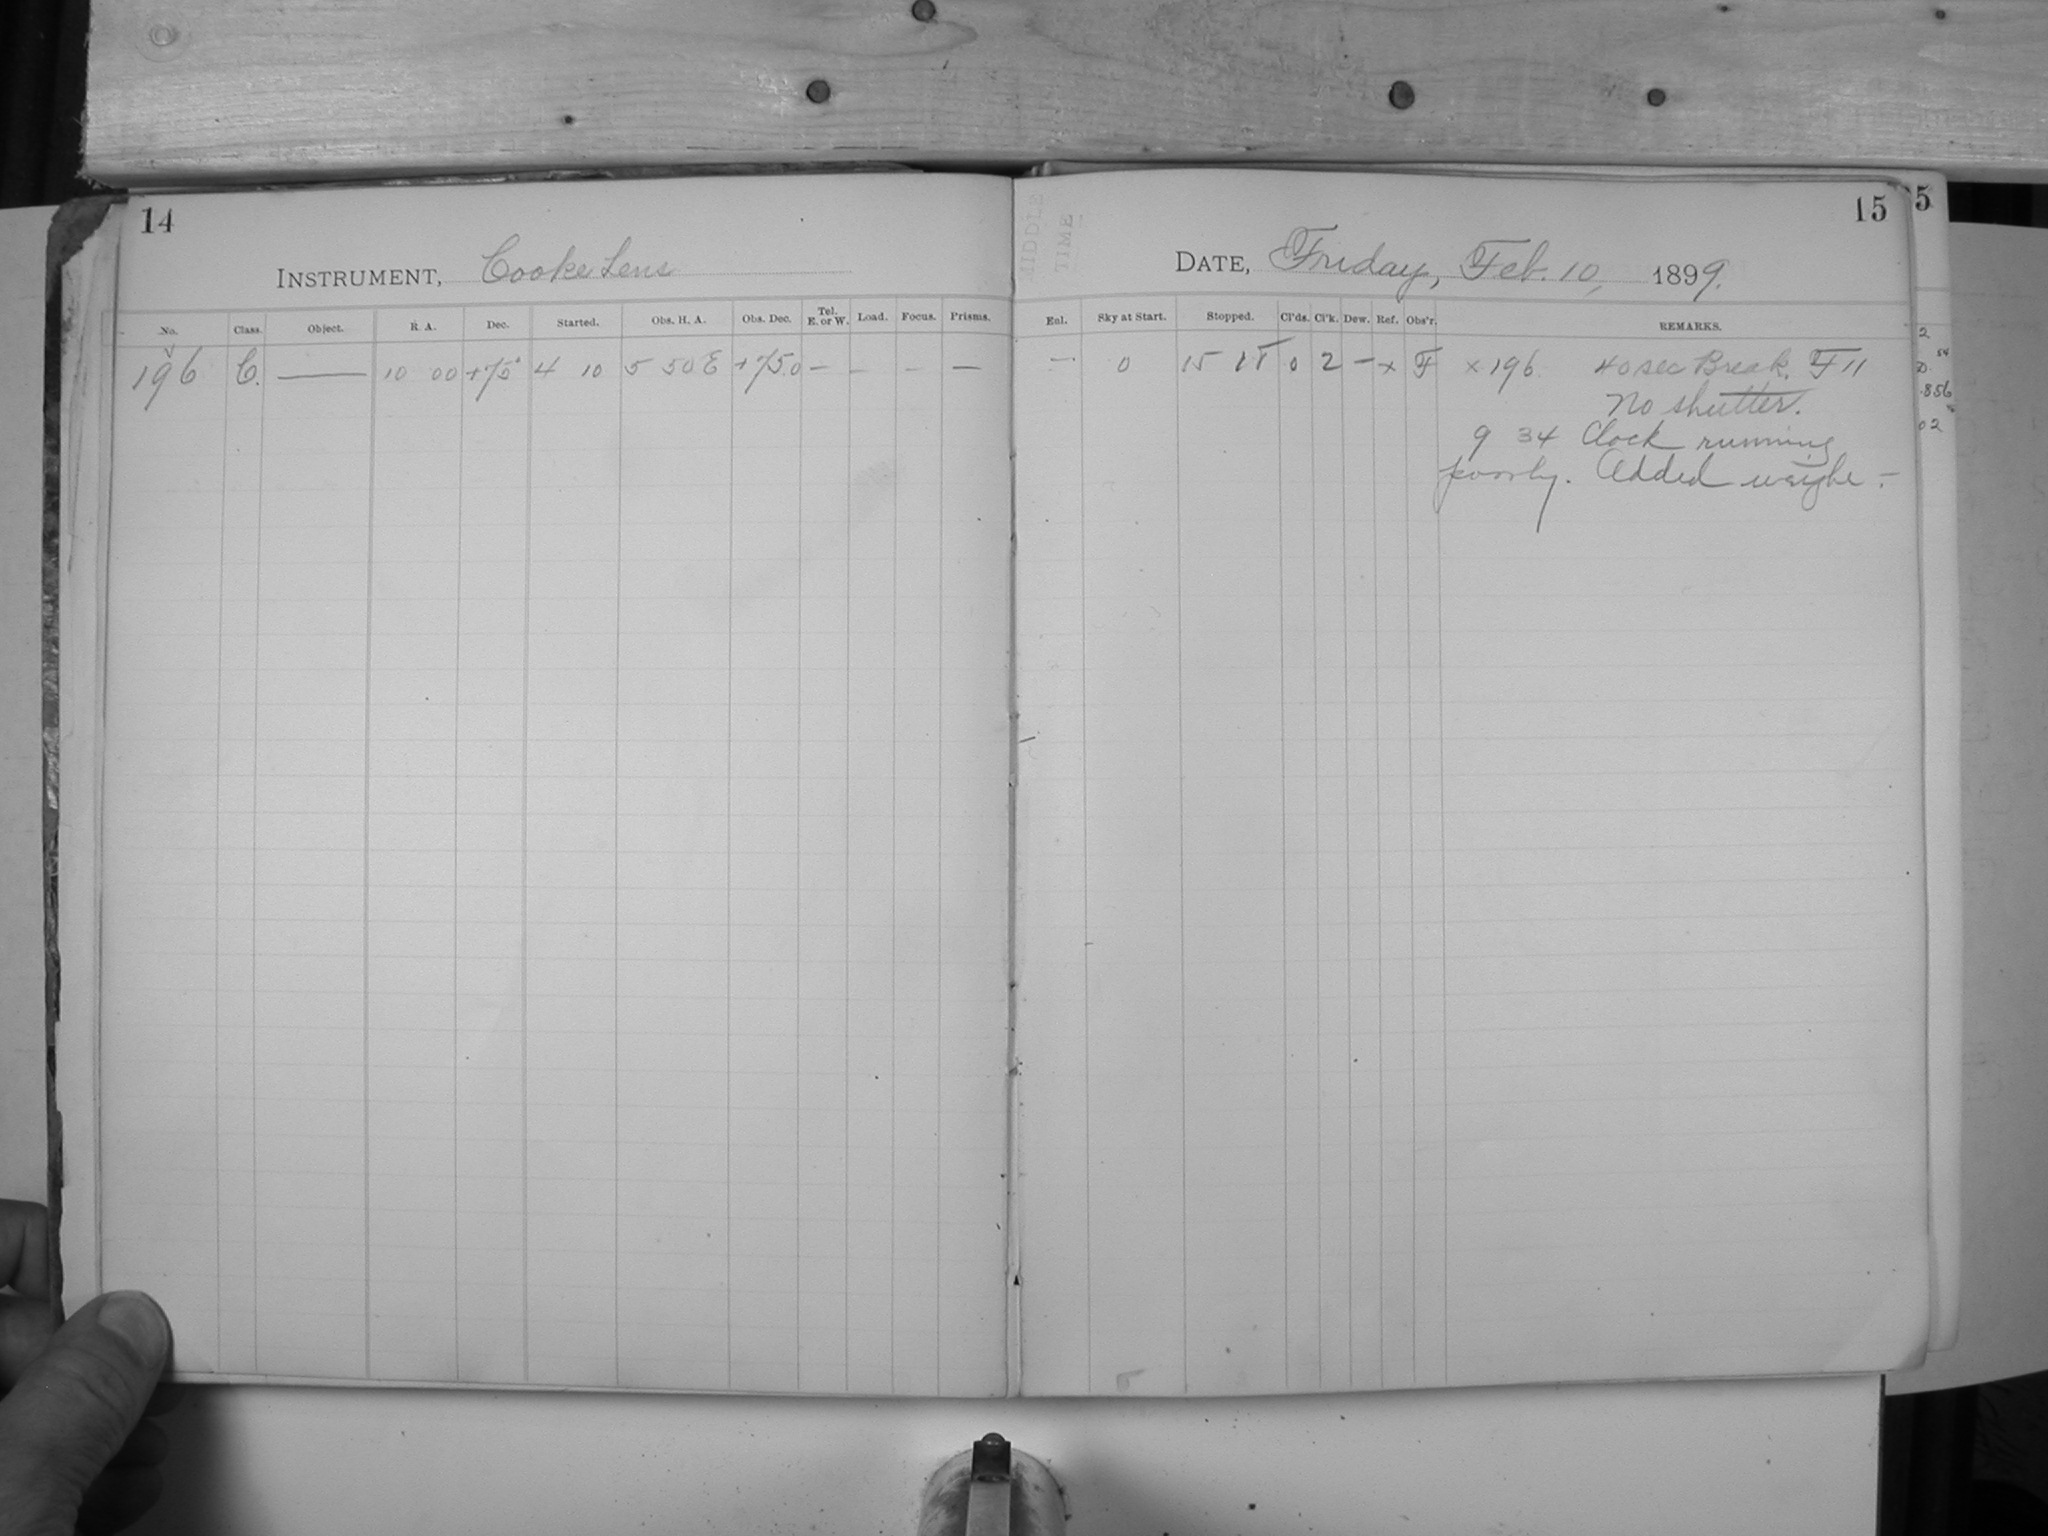 14
15
5
MIDDLE
TIME
INSTRUMENT, Cooke Lens
DATE, Friday, Feb. 10, 1899.
No. Class. Object. R. A. Dec. Started. Obs. H. A. Obs. Dec. Tel. E. or W. Load. Focus. Prisms.
Enl. Sky at Start. Stopped. Cl'ds. Cl'k. Dew. Ref. Obs'r. REMARKS.
196 C. — 10 00 +75° 4 10 5 50 E +75.0 — — — —
— 0 15 15 0 2 — x F x 196 40 sec Break. F 11
No shutter.
9 34 Clock running
poorly. Added weight.
2
54
856
02